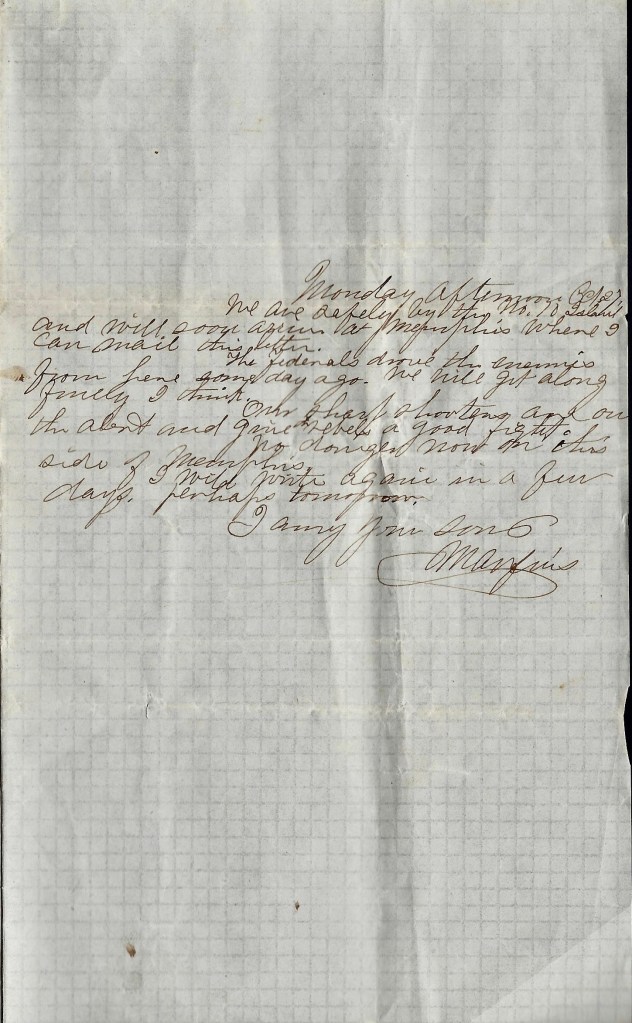 Monday afternoon
We are safely by the No. 10 Island
and will soon arrive at Memphis where I
can mail this letter.
The federals drove the enemies
from here some day ago. We will get along
finely I think.
Our sharp shooters are on
the alert and give rebels a good fight.
No danger now on this
side of Memphis.
I will write again in a few
days. perhaps tomorrow.
I am your son